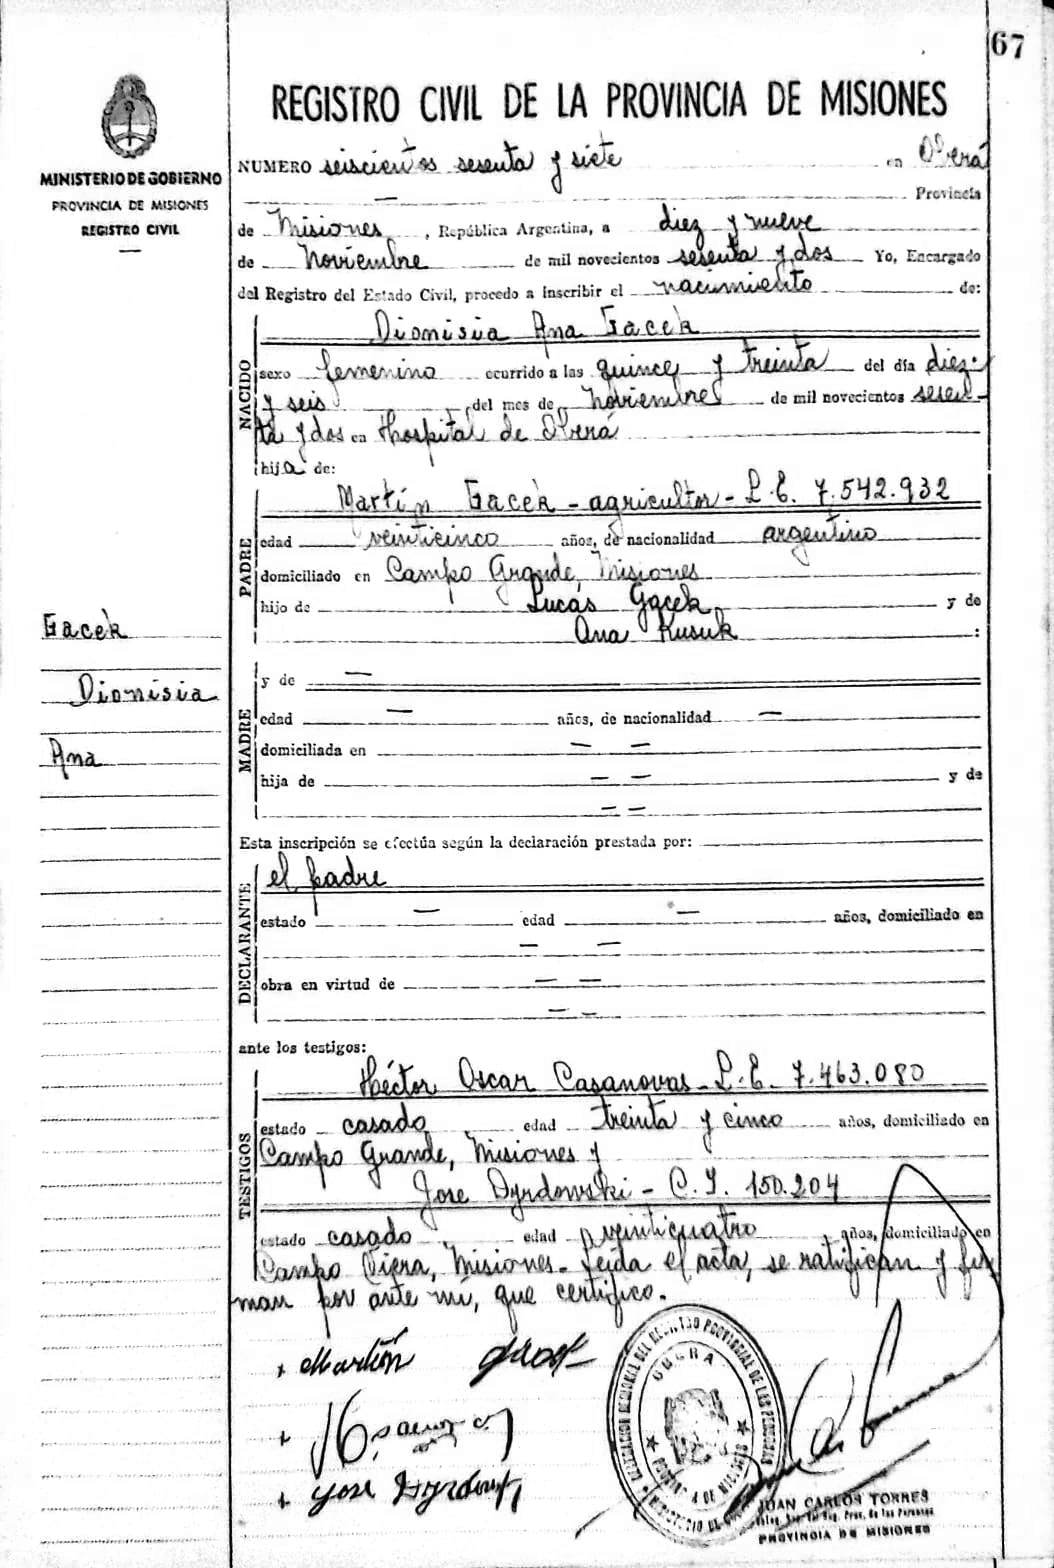 67
MINISTERIO DE GOBIERNO
PROVINCIA DE MISIONES
REGISTRO CIVIL
REGISTRO CIVIL DE LA PROVINCIA DE MISIONES
NUMERO seiscientos sesenta y siete en Oberá
— Provincia
de Misiones, República Argentina, a diez y nueve
de Noviembre de mil novecientos sesenta y dos Yo, Encargado
del Registro del Estado Civil, procedo a inscribir el nacimiento de:
NACIDO
Dionisia Ana Gacek
sexo femenino ocurrido a las quince y treinta del día diez
y seis del mes de Noviembre de mil novecientos sesen-
ta y dos en Hospital de Oberá
hija de:
PADRE
Martín Gacek - agricultor - L.E. 7.542.932
edad veinticinco años, de nacionalidad argentino
domiciliado en Campo Grande, Misiones
hijo de Lucas Gacek y de
Ana Kusuk :
Gacek
Dionisia
Ana
MADRE
y de —
edad — años, de nacionalidad —
domiciliada en — —
hija de — — y de
— —
Esta inscripción se efectúa según la declaración prestada por:
DECLARANTE
el padre
estado — edad — años, domiciliado en
— —
obra en virtud de — —
— —
ante los testigos:
TESTIGOS
Héctor Oscar Casanovas - L.E. 7.463.080
estado casado edad treinta y cinco años, domiciliado en
Campo Grande, Misiones y
Jose Dyrdowski - C.I. 150.204
estado casado edad veinticuatro años, domiciliado en
Campo Viera, Misiones - Leida el acta, se ratifican y fir
man por ante mí, que certifico.
+ Martín Gacek
+
+ Jose Dyrdowski
OBERA
JUAN CARLOS TORRES
PROVINCIA DE MISIONES